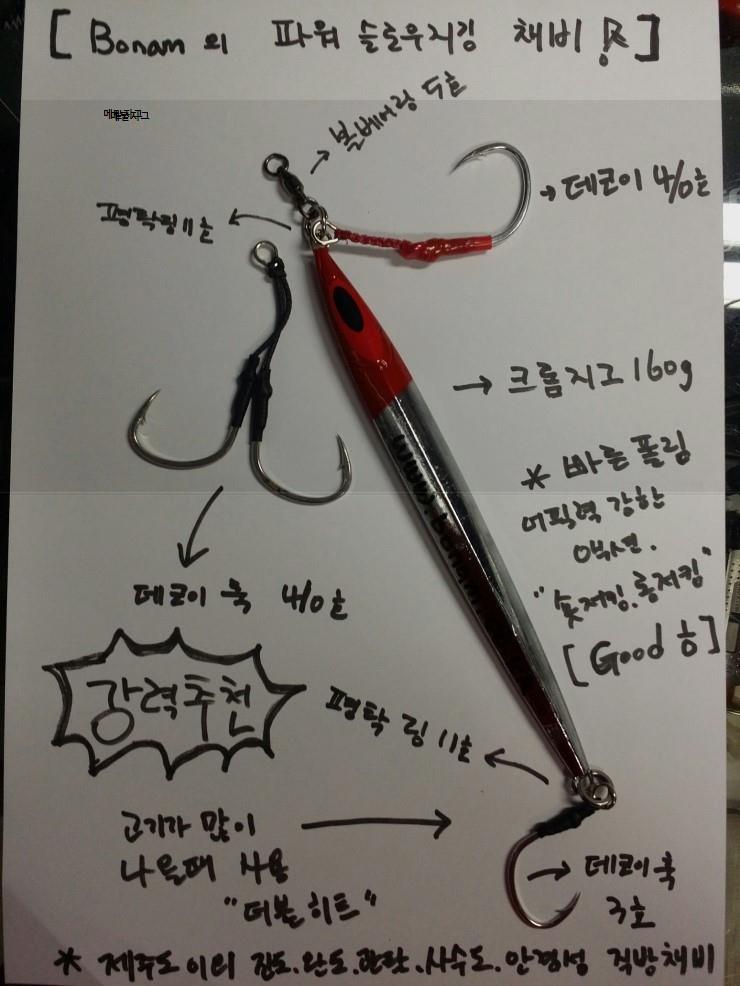 [ Bonam 의 파워 슬로우지깅 채비 ]
볼베어링 5호
데코이 4/0호
평탁링 11호
크롬지그 160g
* 빠른 폴링
어필력 강한
액션.
"숏저킹.롱저킹"
[ Good 흠 ]
데코이 훅 4/0호
강력추천
평탁 링 11호
고기가 많이
나올때 사용
"더블히트"
데코이 훅
3호
* 제주도 이외 .완도.관탈.사수도.안경섬 직방채비